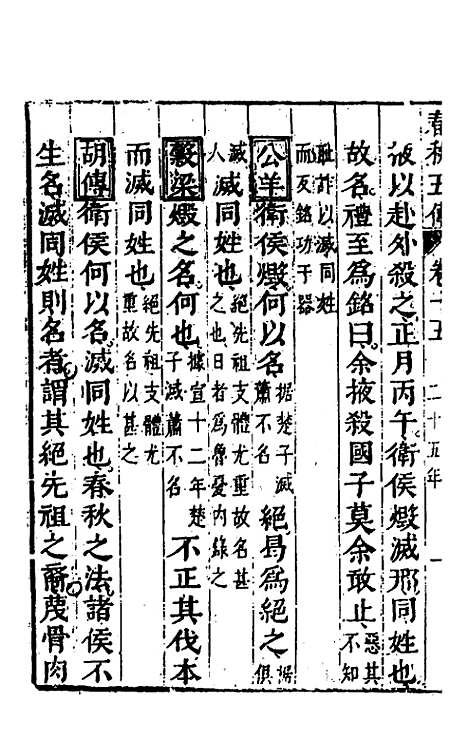 春秋五傳 卷十五 二十五年 一
彼以赴外殺之正月丙午衛侯燬滅邢同姓也
故名禮至爲銘曰余掖殺國子莫余敢止惡其不知
恥詐以滅同姓而反銘功于器
公羊衛侯燬何以名據楚子滅蕭不名絕曷爲絕之據俱
滅人滅同姓也絕先祖支體尤重故名甚之也日者爲魯憂內錄之
穀梁燬之名何也據宣十二年楚子滅蕭不名不正其伐本
而滅同姓也絕先祖支體尤重故名以甚之
胡傳衛侯何以名滅同姓也春秋之法諸侯不
生名滅同姓則名者謂其絕先祖之裔蔑骨肉